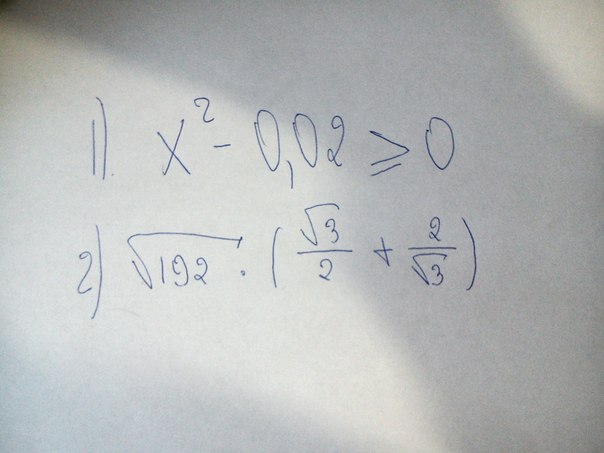 1). x² - 0,02 ⩾ 0
2) √192 · (√3/2 + 2/√3)